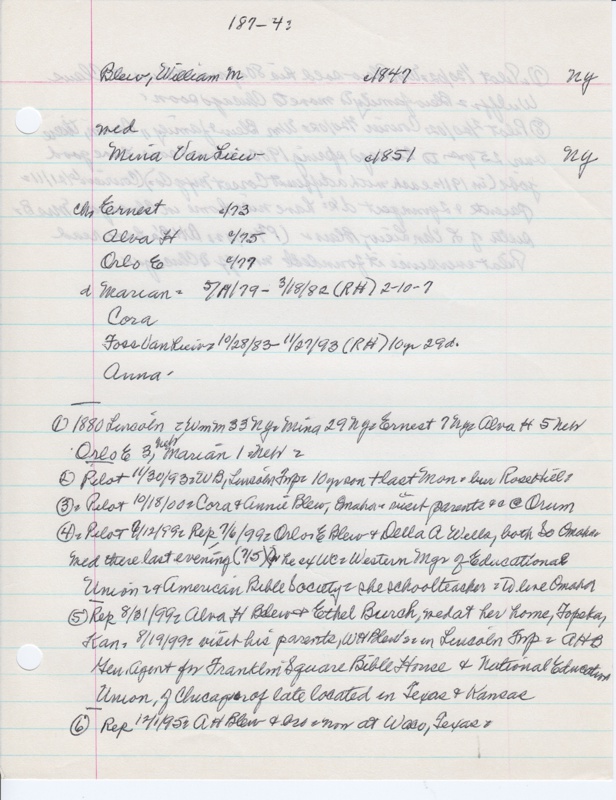 187-43
Blew, William M c1847 Ny
md
Mina Van Liew c1851 Ny
chs Ernest c/73
Alva H c/75
Orlo E c/77
d Marian = 5/11/79 - 3/18/82 (RH) 2-10-7
Cora
Foss Van Liew = 10/28/83 - 11/27/93 (RH) 10yr 29d.
Anna.
① 1880 Lincoln = Wm M 33 Ny = Mina 29 Ny = Ernest 7 Ny = Alva H 5 Neb
Orlo E 3, Neb Marian 1 Neb =
② Pilot 11/30/93 = WB, Lincoln Twp = 10yr son + last Mon. bur Rosehill =
③ = Pilot 10/18/00 = Cora & Annie Blew, Omaha = visit parents & C Orum
④ = Pilot 7/12/99 = Rep 7/6/99 = Orlo E Blew & Della A Wells, both So Omaha
md there last evening (7/5) he ex WC = Western Mgr of Educational
Union = & American Bible Society = she schoolteacher = To live Omaha
⑤ Rep 8/31/99 = Alva H Blew & Ethel Burch, md at her home, Topeka,
Kan. 8/19/99 = visit his parents, WM Blew's = in Lincoln Twp = AHB
Gen Agent for Franklin Square Bible House & National Education
Union, of Chicago of late located in Texas & Kansas
⑥ Rep 12/1/95 = A H Blew = now at Waco, Texas =